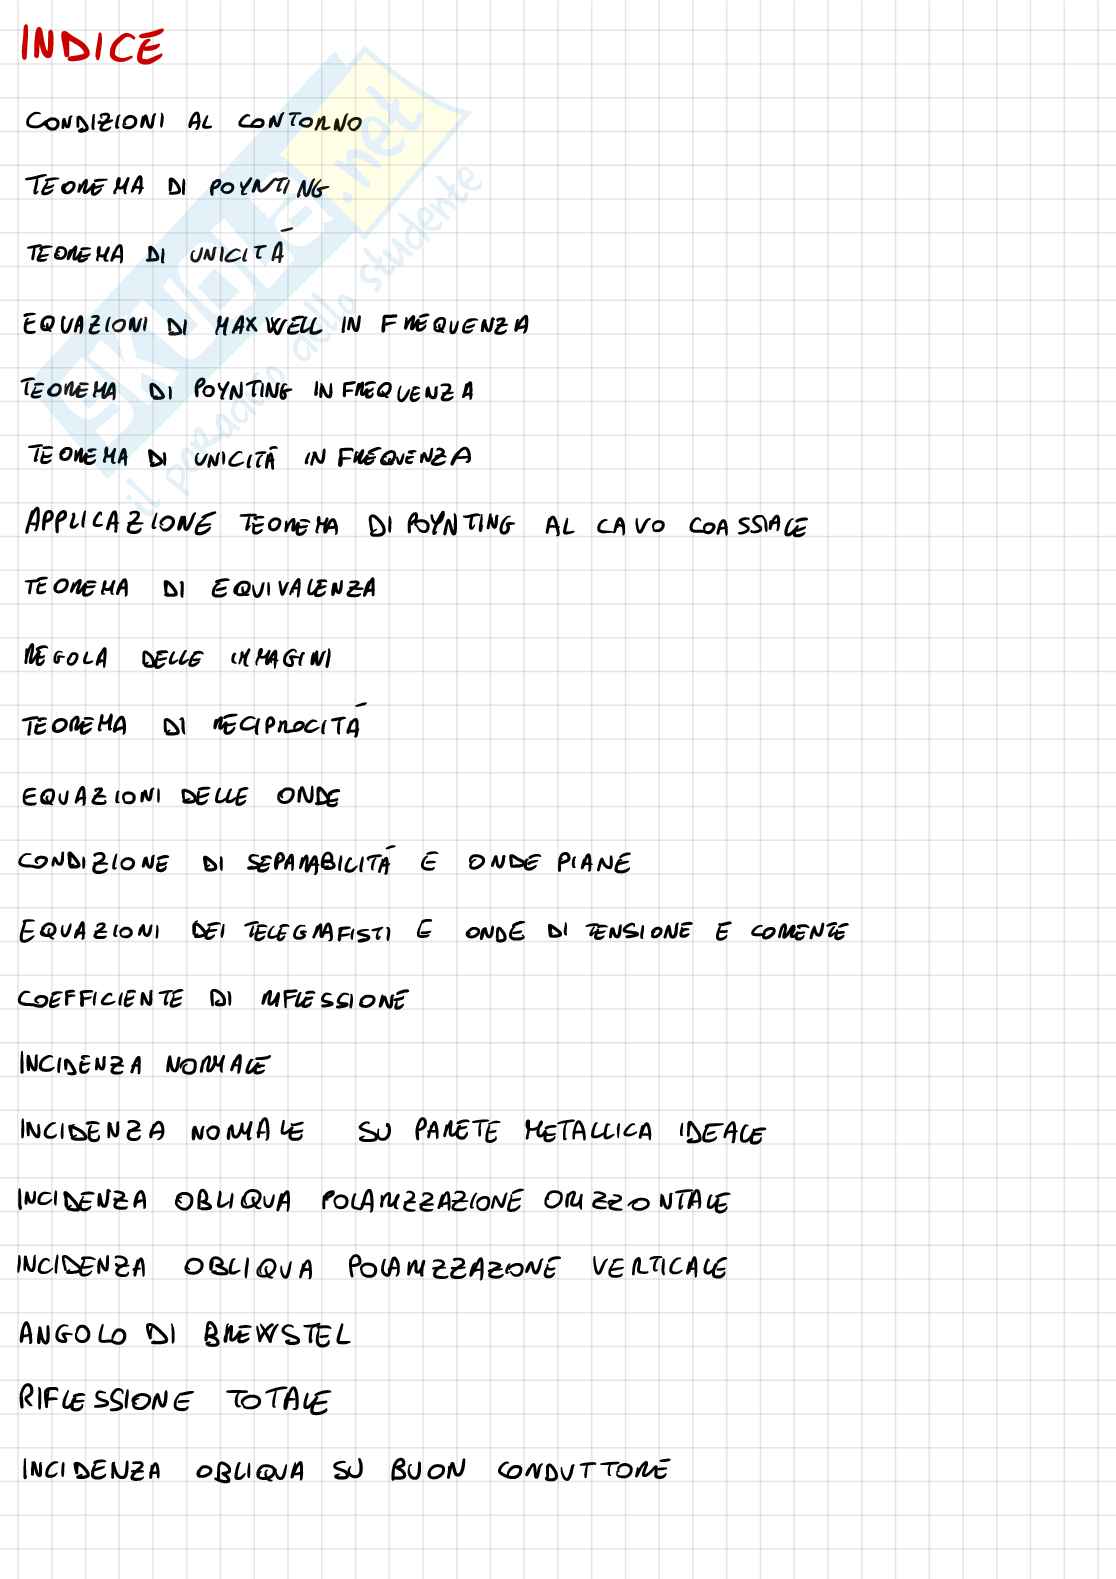 INDICE
CONDIZIONI AL CONTORNO
TEOREMA DI POYNTING
TEOREMA DI UNICITÁ
EQUAZIONI DI MAXWELL IN FREQUENZA
TEOREMA DI POYNTING IN FREQUENZA
TEOREMA DI UNICITÁ IN FREQUENZA
APPLICAZIONE TEOREMA DI POYNTING AL CAVO COASSIALE
TEOREMA DI EQUIVALENZA
REGOLA DELLE IMMAGINI
TEOREMA DI RECIPROCITÁ
EQUAZIONI DELLE ONDE
CONDIZIONE DI SEPARABILITÁ E ONDE PIANE
EQUAZIONI DEI TELEGRAFISTI E ONDE DI TENSIONE E CORRENTE
COEFFICIENTE DI RIFLESSIONE
INCIDENZA NORMALE
INCIDENZA NORMALE SU PARETE METALLICA IDEALE
INCIDENZA OBLIQUA POLARIZZAZIONE ORIZZONTALE
INCIDENZA OBLIQUA POLARIZZAZIONE VERTICALE
ANGOLO DI BREWSTEL
RIFLESSIONE TOTALE
INCIDENZA OBLIQUA SU BUON CONDUTTORE
SKUOLA.net
il paradiso dello studente